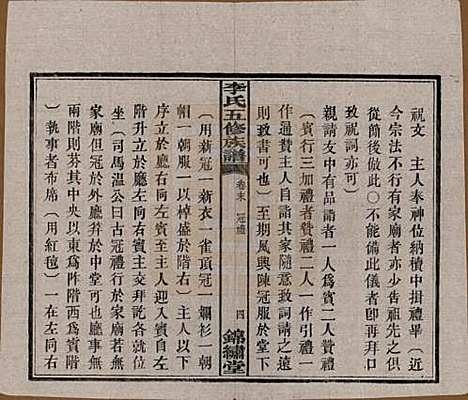 祝文　主人奉神位納櫝中揖禮畢（近
今宗法不行有家廟者亦少吿祖先之儀
從簡儉後做此○不能備此儀者卽再拜口
致祝詞亦可）
親請友中有品誼者一人為賓二人贊禮
（賓行三加禮者贊禮二人一作引禮一
作通贊主人自詣其家隨意致詞請之遠
則致書可也）至期夙興陳冠服於堂下
李氏五修族譜
卷末　冠禮
四
錦繡堂
（用新冠一新衣一雀頂冠一襴衫一朝
帽一朝服一以棹盛於階右）主人以下
序立於廳左向右賓至主人迎賓自左
階升立於廳左向右賓主交拜訖各就位
坐（司馬溫公曰古冠禮行於家廟若無
家廟但冠於外廳幷於中堂可也廳事無
兩階則分其中央以東為阼階西為賓階
）執事者布席（用紅毡）一在左向右